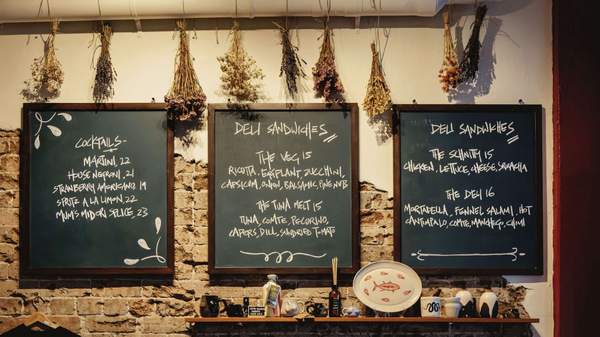 COCKTAILS-
MARTINI, 22
HOUSE NEGRONI, 21
STRAWBERRY AMERICANO 19
SPRITE A LA LIMON, 22
MUM'S MIDORI SPLICE, 23
DELI SANDWICHES
THE VEG 15
RICOTTA, EGGPLANT ZUCCHINI,
CAPSICUM, ONION, BALSAMIC, PINE NUTS
THE TUNA MELT 15
TUNA, COMTE, PECORINO,
CAPERS, DILL, SUNDRIED TOMATO
DELI SANDWICHES
THE SCHNITTY 15
CHICKEN, LETTUCE, CHEESE, SRIRACHA
THE DELI 16
MORTADELLA, FENNEL SALAMI, HOT
COMTE, MANCHEGO, CHIMI